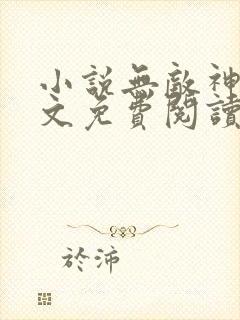 小說無敵神
文免費閱讀
於沛